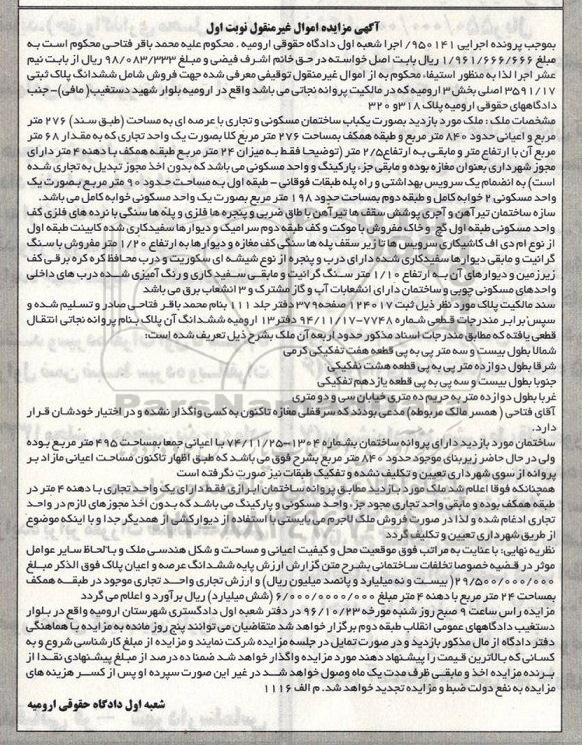 آگهی مزایده اموال غیرمنقول نوبت اول
بموجب پرونده اجرایی ۹۵۰۱۴۱/ اجرا شعبه اول دادگاه حقوقی ارومیه . محکوم علیه محمد باقر فتاحی محکوم است به
مبلغ ۱/۹۶۱/۶۶۶/۶۶۶ ریال بابت اصل خواسته در حق خانم اشرف فیضی و مبلغ ۹۸/۰۸۳/۳۳۳ ریال از بابت نیم
عشر اجرا لذا به منظور استیفاء محکوم به از اموال غیر منقول توقیفی معرفی شده جهت فروش شامل ششدانگ پلاک ثبتی
۳۵۹۱/۱۷ اصلی بخش ۳ ارومیه که در مالکیت پروانه نجاتی می باشد واقع در ارومیه بلوار شهید دستغیب( مافی)- جنب
دادگاههای حقوقی ارومیه پلاک ۳۱۸و ۳۲۰
مشخصات ملک : ملک مورد بازدید بصورت یکباب ساختمان مسکونی و تجاری با عرصه ای به مساحت (طبق سند) ۲۷۶ متر
مربع و اعیانی حدود ۸۴۰ متر مربع و طبقه همکف بمساحت ۲۷۶ متر مربع کلا بصورت یک واحد تجاری که به مقدار ۶۸ متر
مربع آن با ارتفاع متر و مابقی به ارتفاع ۲/۵ متر (توضیحا فقط به میزان ۲۴ متر مربع طبقه همکف با دهنه ۴ متر دارای
مجوز شهرداری بعنوان مغازه بوده و مابقی جزء پارکینگ و واحد مسکونی می باشد که بدون اخذ مجوز تبدیل به تجاری شده
است) به انضمام یک سرویس بهداشتی و راه پله طبقات فوقانی - طبقه اول به مساحت حدود ۹۰ متر مربع بصورت یک
واحد مسکونی ۲ خوابه کامل و طبقه دوم بمساحت حدود ۱۹۸ متر مربع بصورت یک واحد مسکونی خوابه کامل می باشد.
سازه ساختمان تیرآهن و آجری پوشش سقف ها تیرآهن با طاق ضربی و پنجره ها فلزی و پله ها سنگی با نرده های فلزی کف
واحد مسکونی طبقه اول گچ و خاک مفروش با موکت و کف طبقه دوم سرامیک و دیوارها سفیدکاری شده کابینت طبقه اول
از نوع ام دی اف کاشیکاری سرویس ها تا زیر سقف پله ها سنگی کف مغازه و دیوارها به ارتفاع ۱/۲۰ متر مفروش با سنگ
گرانیت و مابقی دیوارها سفیدکاری شده دارای درب و پنجره از نوع شیشه ای سکوریت و درب محافظ کره کره برقی کف
زیرزمین و دیوارهای آن به ارتفاع ۱/۱۰ متر سنگ گرانیت و مابقی سفید کاری و رنگ آمیزی شده درب های داخلی
واحدهای مسکونی چوبی و ساختمان دارای انشعابات آب و گاز مشترک و ۳ انشعاب برق می باشد
سند مالکیت پلاک مورد نظر ذیل ثبت ۱۲۴۰۱۷ صفحه۳۷۹ دفتر جلد ۱۱۱ بنام محمد باقر فتاحی صادر و تسلیم شده و
سپس برابر مندرجات قطعی شماره ۷۷۴۸-۹۴/۱۱/۱۷ دفتر ۱۳ ارومیه ششدانگ آن پلاک بنام پروانه نجاتی انتقال
قطعی یافته که مطابق مندرجات اسناد مذکور حدود اربعه آن ملک بشرح ذیل تعریف شده است:
شمالا بطول بیست و سه متر پی به پی قطعه هفت تفکیکی کرمی
شرقا بطول دوازده متر پی به پی قطعه هشت تفکیکی
جنوبا بطول بیست و سه پی به پی قطعه یازدهم تفکیکی
غربا بطول دوازده متر به حریم ده متری خیابان سی و دو متری
آقای فتاحی ( همسر مالک مربوطه) مدعی بودند که سرقفلی مغازه تاکنون به کسی واگذار نشده و در اختیار خودشان قرار
دارد.
ساختمان مورد بازدید دارای پروانه ساختمان بشماره ۱۳۰۴-۷۴/۱۱/۲۵ با اعیانی جمعا بمساحت ۴۹۵ متر مربع بوده
ولی در حال حاضر زیربنای موجود حدود ۸۴۰ متر مربع بشرح فوق می باشد که طبق اظهار تاکنون مساحت اعیانی مازاد بر
پروانه از سوی شهرداری تعیین و تکلیف نشده و تفکیک طبقات نیز صورت نگرفته است
همچنانکه فوقا اعلام شد ملک مورد بازدید مطابق پروانه ساختمان ابرازی فقط دارای یک واحد تجاری با دهنه ۴ متر در
طبقه همکف بوده و مابقی واحد تجاری مجود جزء واحد مسکونی و پارکینگ می باشد که بدون اخذ مجوزهای لازم در واحد
تجاری ادغام شده و لذا در صورت فروش ملک لاجرم می بایستی با استفاده از دیوارکشی از همدیگر جدا و یا اینکه موضوع
از طریق شهرداری تعیین و تکلیف گردد
نظریه نهایی: با عنایت به مراتب فوق موقعیت محل و کیفیت اعیانی و مساحت و شکل هندسی ملک و بالحاظ سایر عوامل
موثر در قضیه خصوصا تخلفات ساختمانی بشرح متن گزارش ارزش پایه ششدانگ عرصه و اعیان پلاک فوق الذکر مبلغ
۲۹/۵۰۰/۰۰۰/۰۰۰ (بیست و نه میلیارد و پانصد میلیون ریال) و ارزش تجاری واحد تجاری موجود در طبقه همکف
بمساحت ۲۴ متر مربع با دهنه ۴ متر مبلغ ۶/۰۰۰/۰۰۰/۰۰۰ (شش میلیارد) ریال برآورد و اعلام می گردد
مزایده راس ساعت ۹ صبح روز شنبه مورخه ۹۶/۱۰/۲۳ در دفتر شعبه اول دادگستری شهرستان ارومیه واقع در بلوار
دستغیب دادگاههای عمومی انقلاب طبقه دوم برگزار خواهد شد متقاضیان می توانند پنج روز مانده به مزایده با هماهنگی
دفتر دادگاه از مال مذکور بازدید و در صورت تمایل در جلسه مزایده شرکت نمایند و مزایده از مبلغ کارشناسی شروع و به
کسانی که بالاترین قیمت را پیشنهاد دهند مورد مزایده واگذار خواهد شد ضمنا ده درصد از مبلغ پیشنهادی نقدا از
برنده مزایده اخذ و مابقی ظرف مدت یک ماه وصول خواهد شد در غیر این صورت سپرده او پس از کسر هزینه های
مزایده به نفع دولت ضبط و مزایده تجدید خواهد شد. م الف ۱۱۱۶
شعبه اول دادگاه حقوقی ارومیه